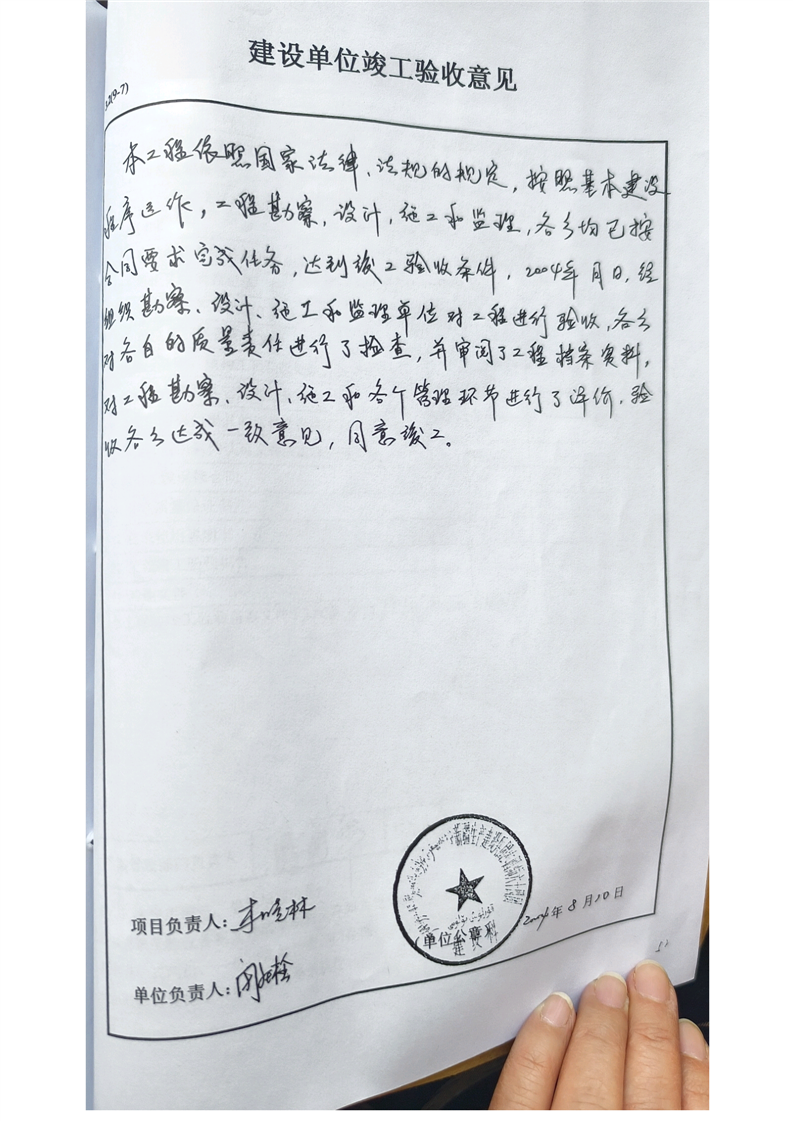 建设单位竣工验收意见
本工程依照国家法律、法规的规定，按照基本建设
程序运作，工程勘察，设计，施工和监理，各方均已按
合同要求完成任务，达到竣工验收条件，2004年 月 日，经
组织勘察、设计、施工和监理单位对工程进行验收，各方
对各自的质量责任进行了检查，并审阅了工程档案资料，
对工程勘察、设计、施工和各个管理环节进行了评价，验
收各方达成一致意见，同意竣工。
项目负责人：
(单位公章)
建设科
2004年8月10日
单位负责人：
52